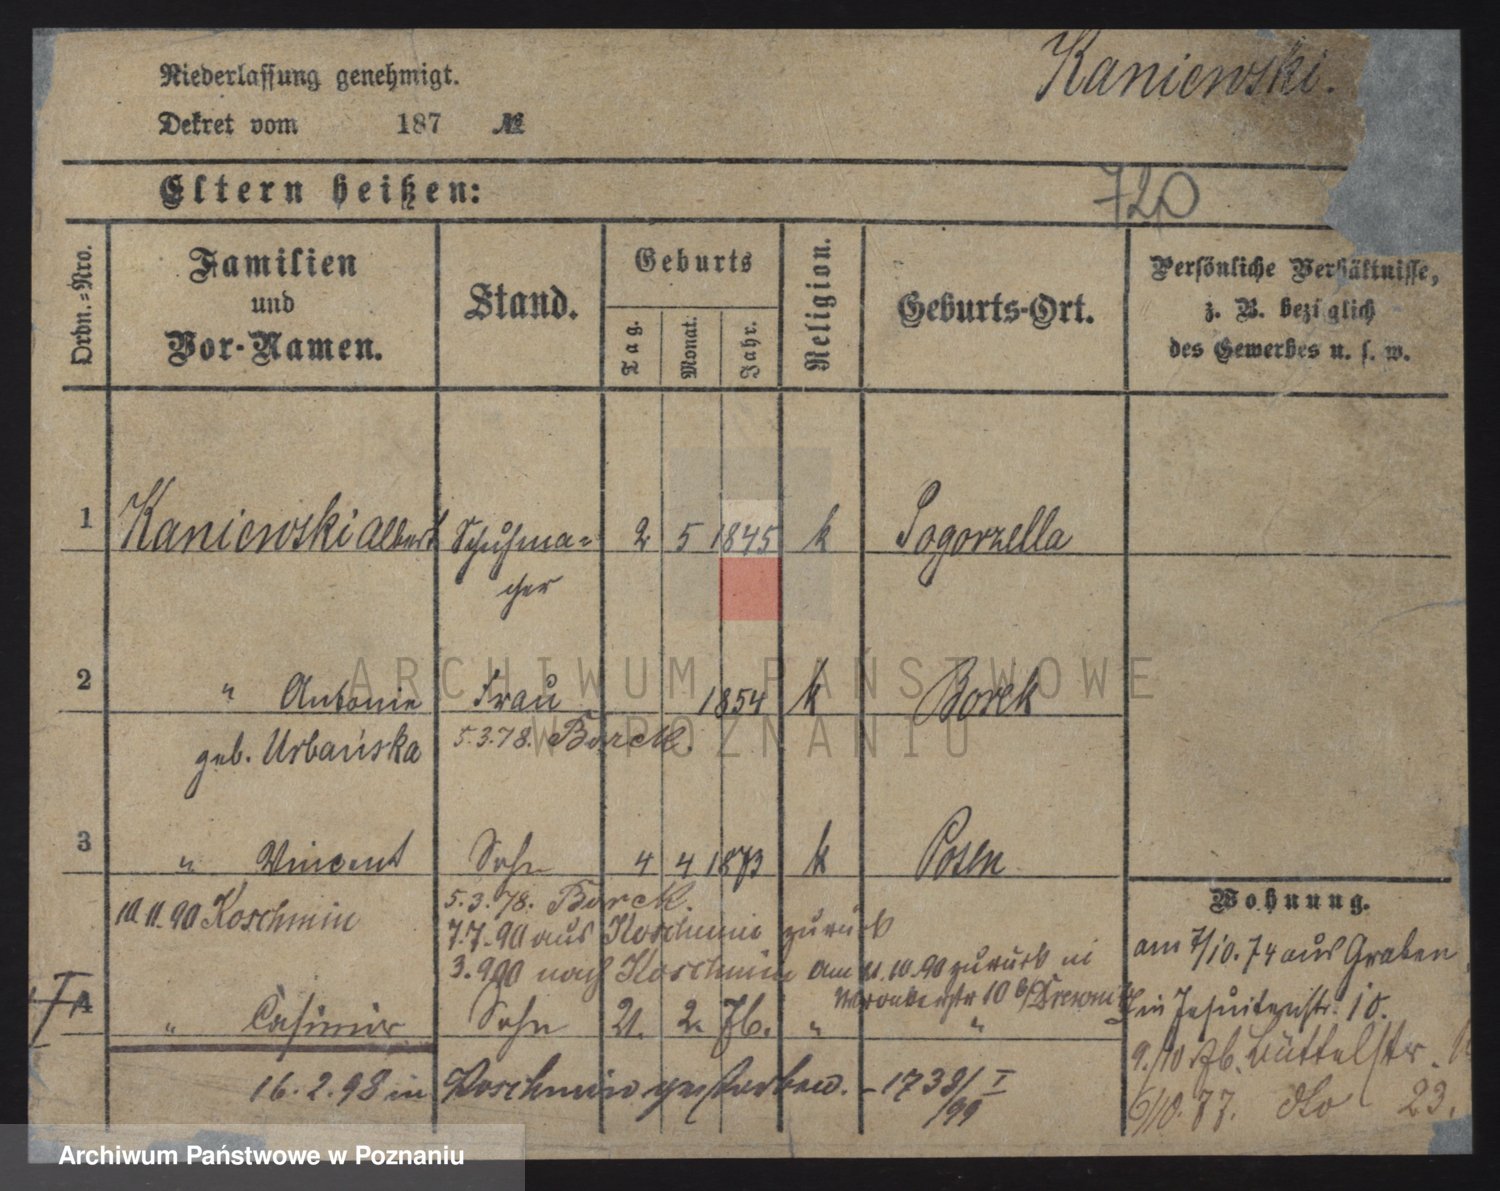 Niederlassung genehmigt.
Kaniewski.
Dekret vom 187 №
Eltern heißen:
720
Ordn.=Nro.
Familien
und
Vor-Namen.
Stand.
Geburts
Tag.
Monat.
Jahr.
Religion.
Geburts-Ort.
Persönliche Verhältnisse,
z. B. bezüglich
des Gewerbes u. s. w.
1 Kaniewski Albert Schuhma= 2 5 1845 k Pogorzella
cher
2 " Antonie Frau 1854 k Borek
geb. Urbańska 5.3.78. Borek.
3 " Vincent Sohn 4 4 1873 k Posen
10.11.90 Koschmin 5.3.78. Borek.
7.7.90 aus Koschmin zurück
3.9.90 nach Koschmin am 21.10.90 zurück in
Wronkerstr 10 b/
4 " Casimir Sohn 21. 2. 76. " "
16.2.98 in Koschmin gestorben. - 1738/I
/99
Wohnung.
am 7/10.74 aus Graben
in Jesuitenstr. 10.
9./10 76. Büttelstr.
6/10.77. dto 23.
ARCHIWUM PAŃSTWOWE
W POZNANIU
Archiwum Państwowe w Poznaniu